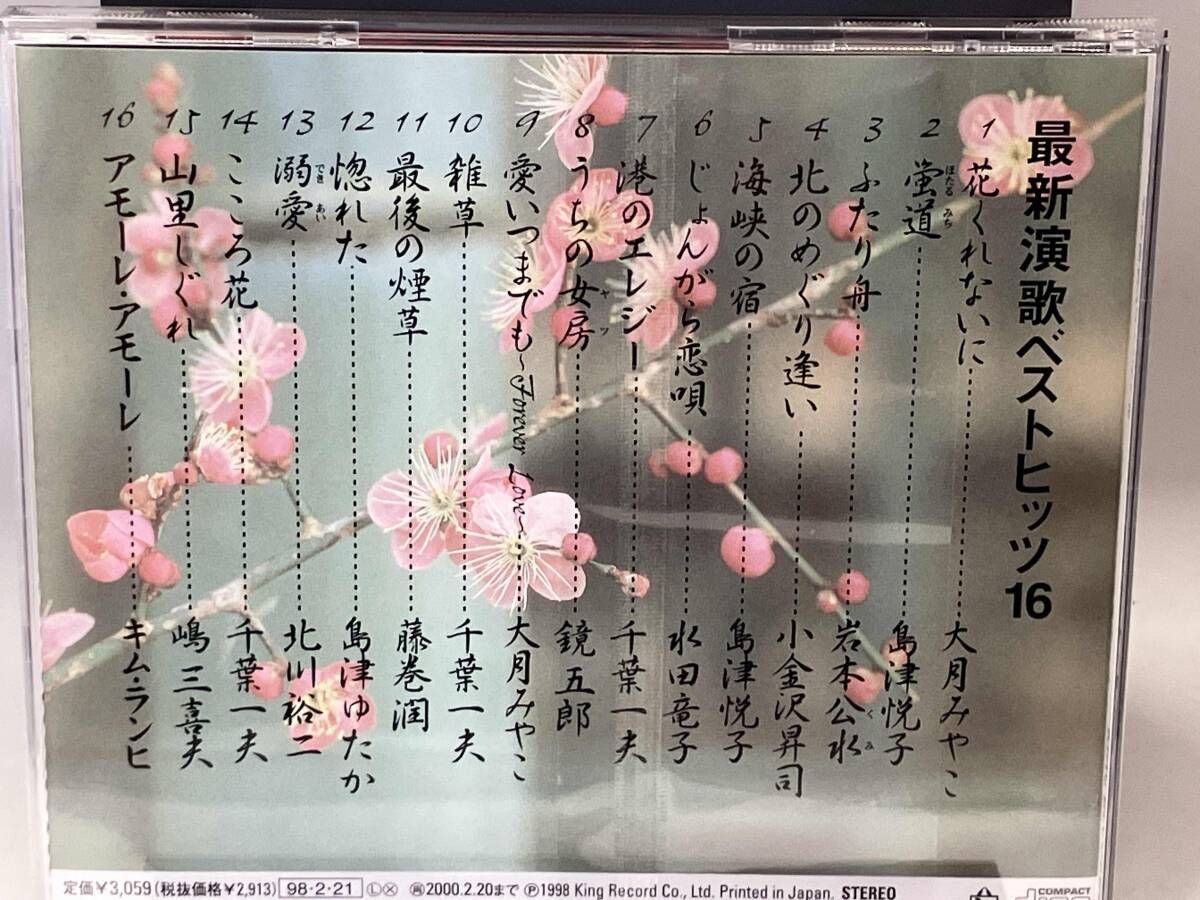 最新演歌ベストヒッツ16
1 花くれないに 大月みやこ
2 蛍道 ほたる みち 島津悦子
3 ふたり舟 岩本公水 くみ
4 北のめぐり逢い 小金沢昇司
5 海峡の宿 島津悦子
6 じょんがら恋唄 水田竜子
7 港のエレジー 千葉一夫
8 うちの女房 ヤツ 鏡五郎
9 愛いつまでも~Forever Love~ 大月みやこ
10 雑草 千葉一夫
11 最後の煙草 藤巻潤
12 惚れた 島津ゆたか
13 溺愛 でき あい 北川裕二
14 こころ花 千葉一夫
15 山里しぐれ 嶋三喜夫
16 アモーレ・アモーレ キム・ランヒ
定価¥3,059(税抜価格¥2,913) 98・2・21 Ⓛ 2000.2.20まで Ⓟ1998 King Record Co., Ltd. Printed in Japan. STEREO
COMPACT